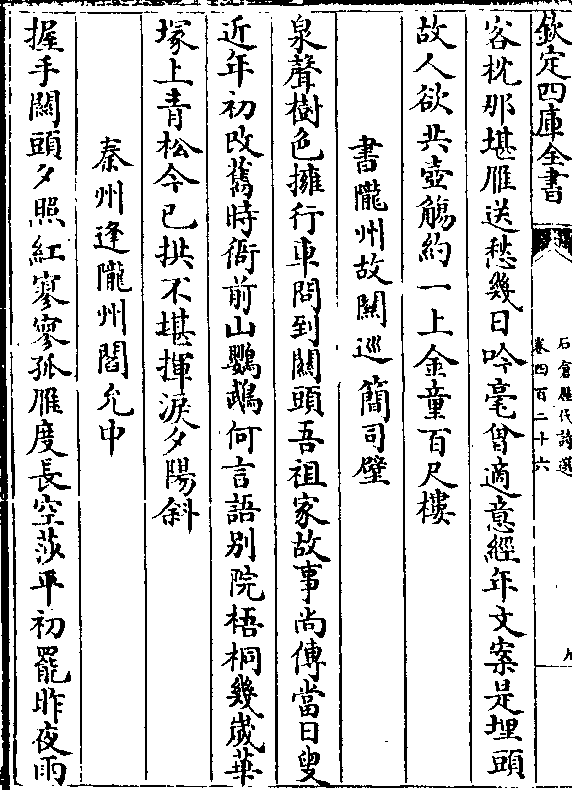 欽定四庫全書
石倉歷代詩選
卷四百二十六
九
客枕那堪雁送愁幾日吟毫曾適意經年文案是埋頭
故人欲共壺觴約一上金童百尺樓
書隴州故關巡簡司壁
泉聲樹色擁行車問到關頭吾祖家故事尚傳當日叟
近年初改舊時衙前山鸚鵡何言語别院梧桐幾歲華
塚上青松今已拱不堪揮淚夕陽斜
秦州逢隴州閻允中
握手關頭夕照紅寥寥孤雁度長空莎平初罷昨夜雨